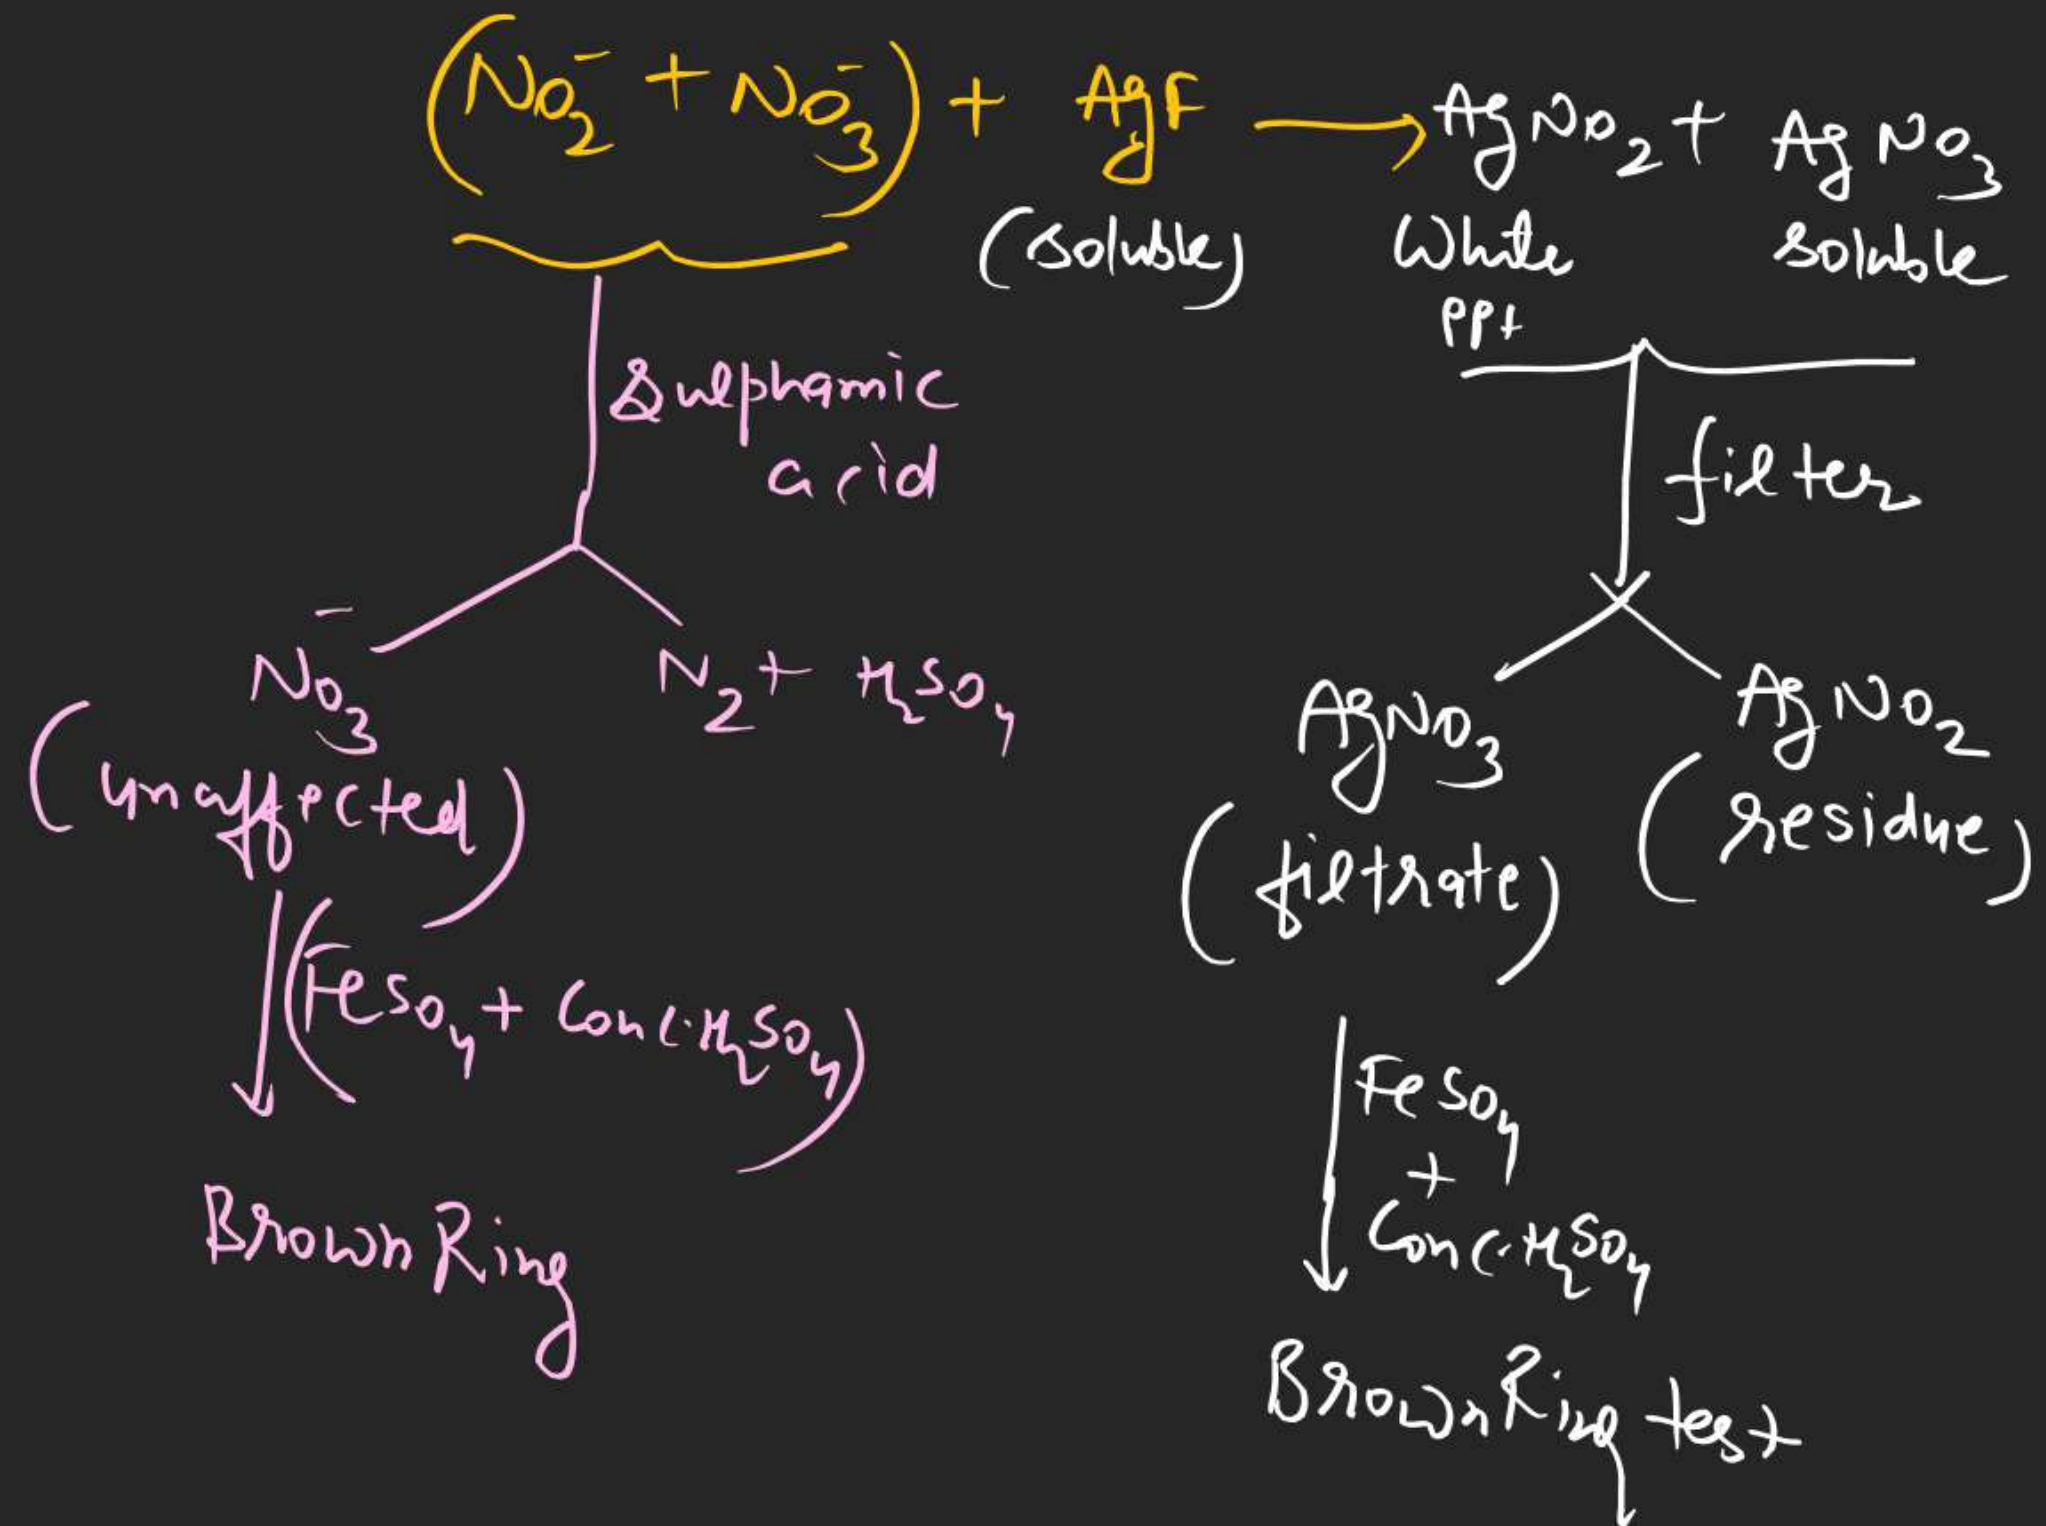 (NO₂⁻ + NO₃⁻) + AgF ⟶ AgNO₂ + AgNO₃
(soluble) White soluble
ppt
Sulphamic
acid
filter
NO₃⁻ N₂ + H₂SO₄
(unaffected)
AgNO₃ AgNO₂
(filtrate) (residue)
(FeSO₄ + Conc. H₂SO₄)
Brown Ring
FeSO₄
+
Conc. H₂SO₄
Brown Ring test